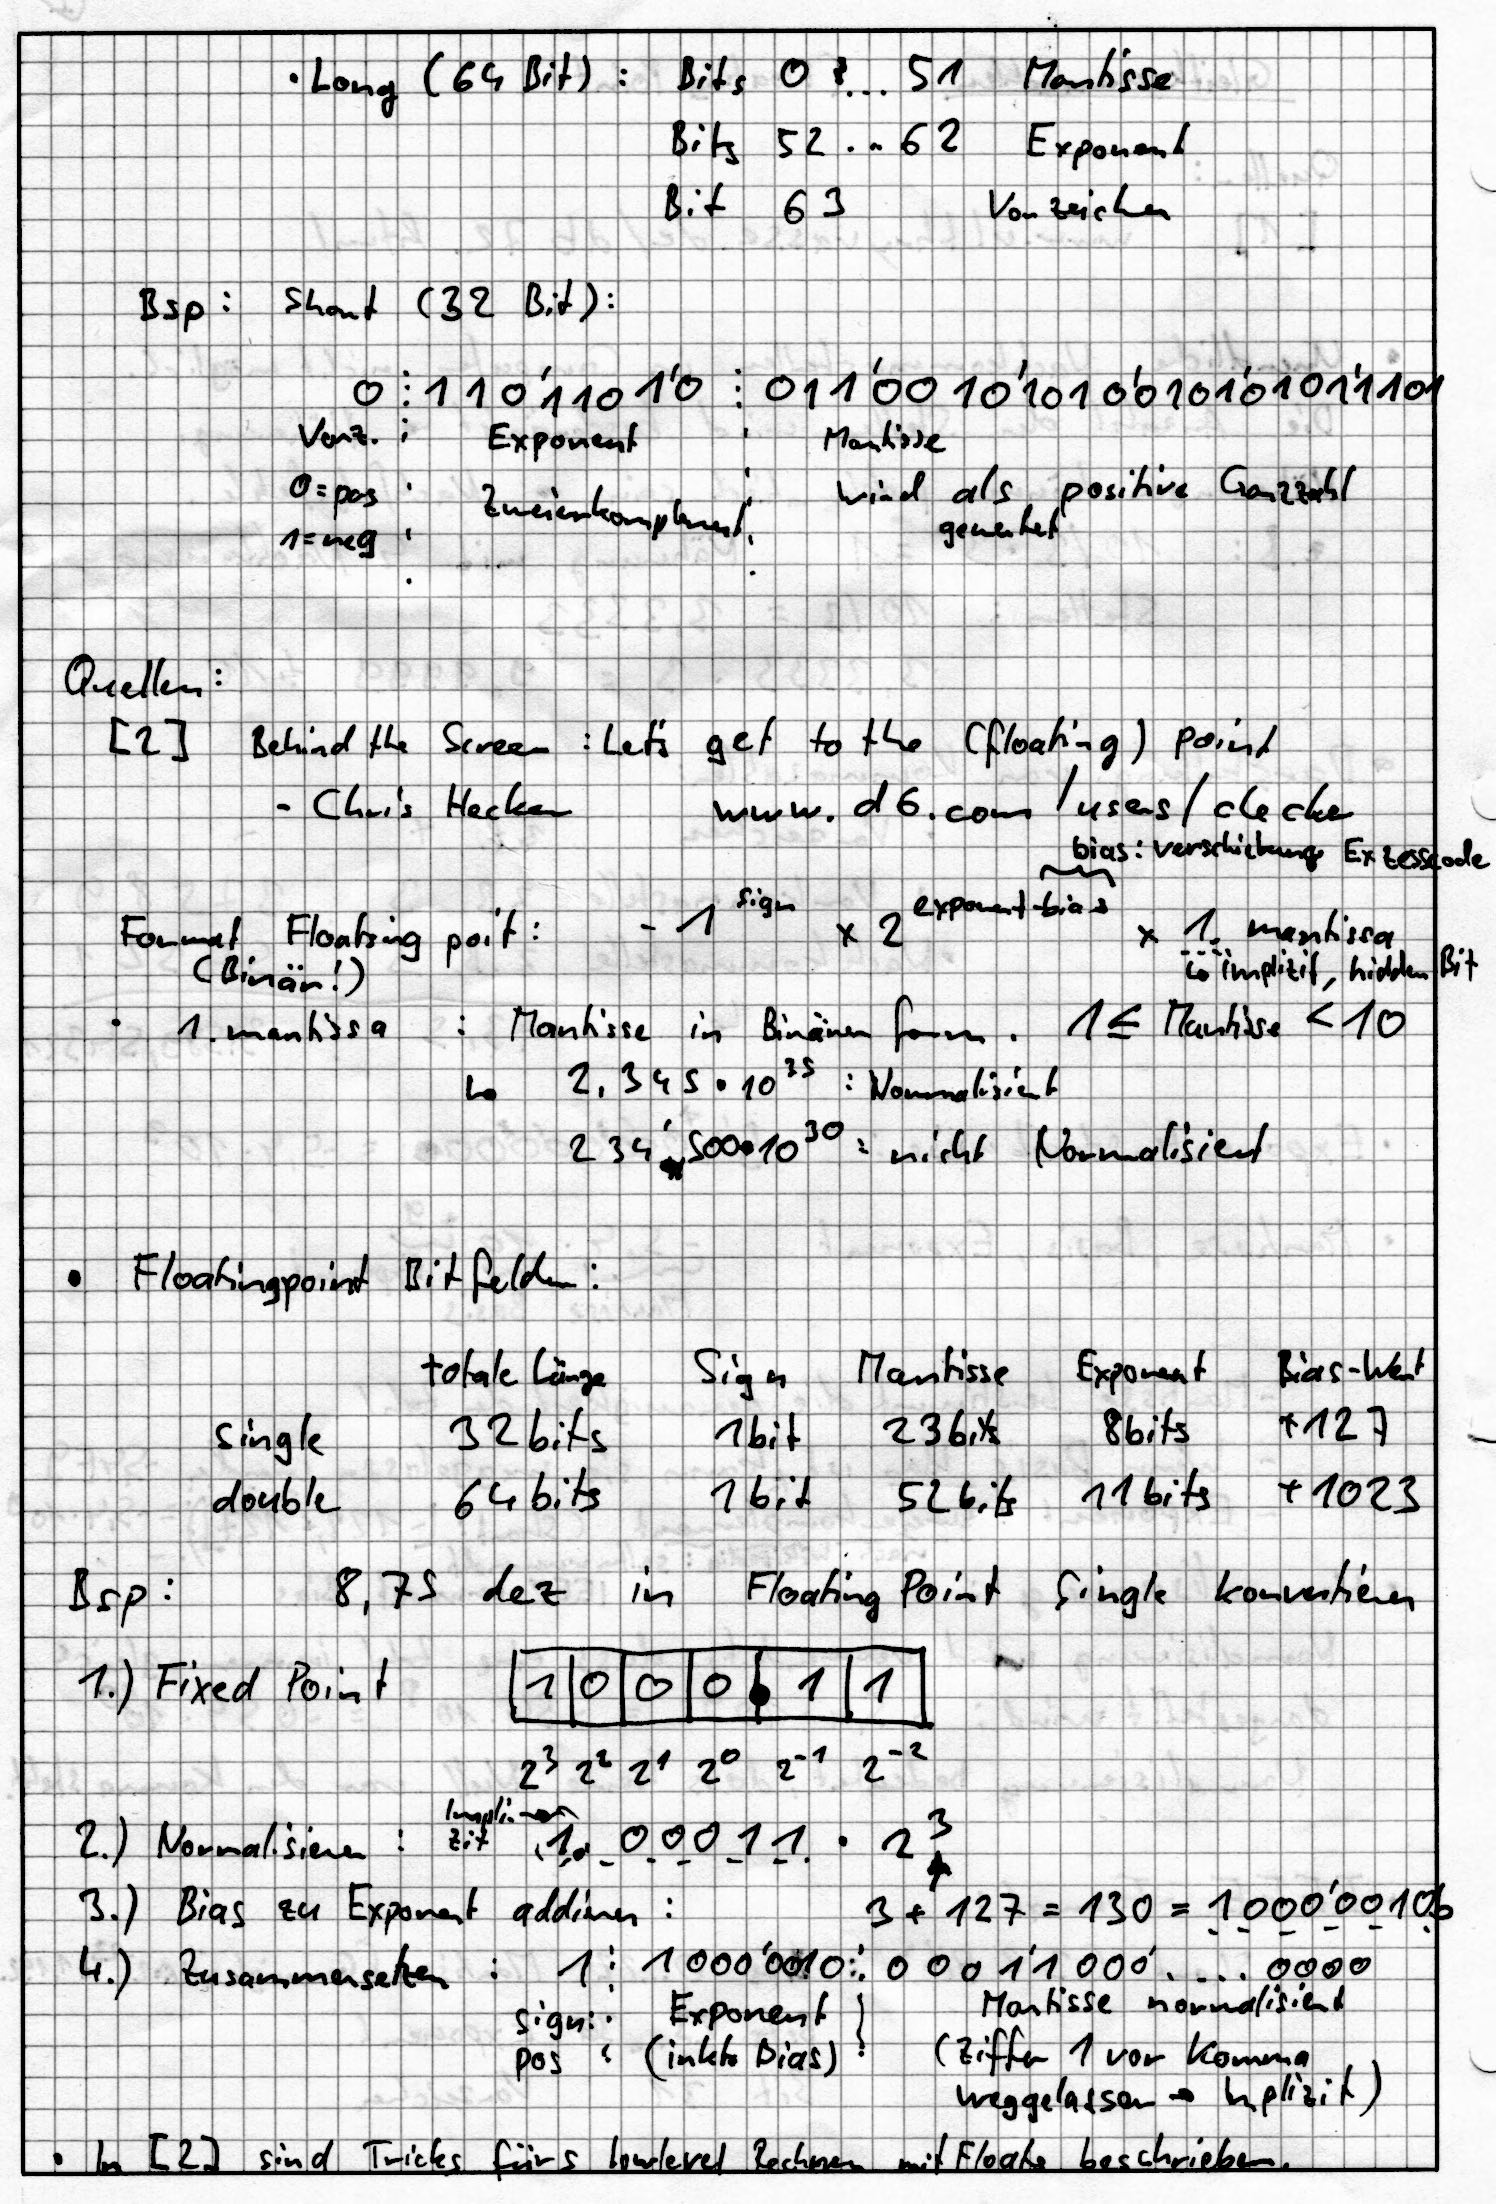 • Long (64 Bit) : Bits 0 ... 51 Mantisse
Bits 52 ... 62 Exponent
Bit 63 Vorzeichen
Bsp : Short (32 Bit) :
0 ⋮ 110'1101'0 ⋮ 011'0010'1010'0101'0101'1101
Vorz. Exponent Mantisse
0=pos Zweierkomplement wird als positive Ganzzahl
1=neg gewertet
Quellen :
[2] Behind the Screen : Let's get to the (floating) point
- Chris Hecker www.d6.com/users/checker
bias : verschiebung Exzesscode
Format Floating poit : -1^sign × 2^exponent-bias × 1. mantissa
(Binär!) ↳ implizit, hidden Bit
• 1.mantissa : Mantisse in Binärer form. 1 ≤ Mantisse < 10
↳ 2,345 • 10^35 : Normalisiert
234'500•10^30 : nicht Normalisiert
• Floatingpoint Bitfelder :
totale Länge Sign Mantisse Exponent Bias-Wert
single 32bits 1bit 23bits 8bits +127
double 64bits 1bit 52bits 11bits +1023
Bsp : 8,75 dez in Floating Point Single konvertieren
1.) Fixed Point 1 0 0 0 . 1 1
2^3 2^2 2^1 2^0 2^-1 2^-2
2.) Normalisieren : Implizit 1. 00011 • 2^3
3.) Bias zu Exponent addieren : 3 + 127 = 130 = 1000'0010b
4.) Zusammensetzen : 1 ⋮ 1000'0010 ⋮ 00011000' .... 0000
sign : Exponent Mantisse normalisiert
pos (inkl. Bias) (Ziffer 1 vor Komma
weggelassen → Implizit)
• In [2] sind Tricks fürs lowlevel Rechnen mit Floats beschrieben.